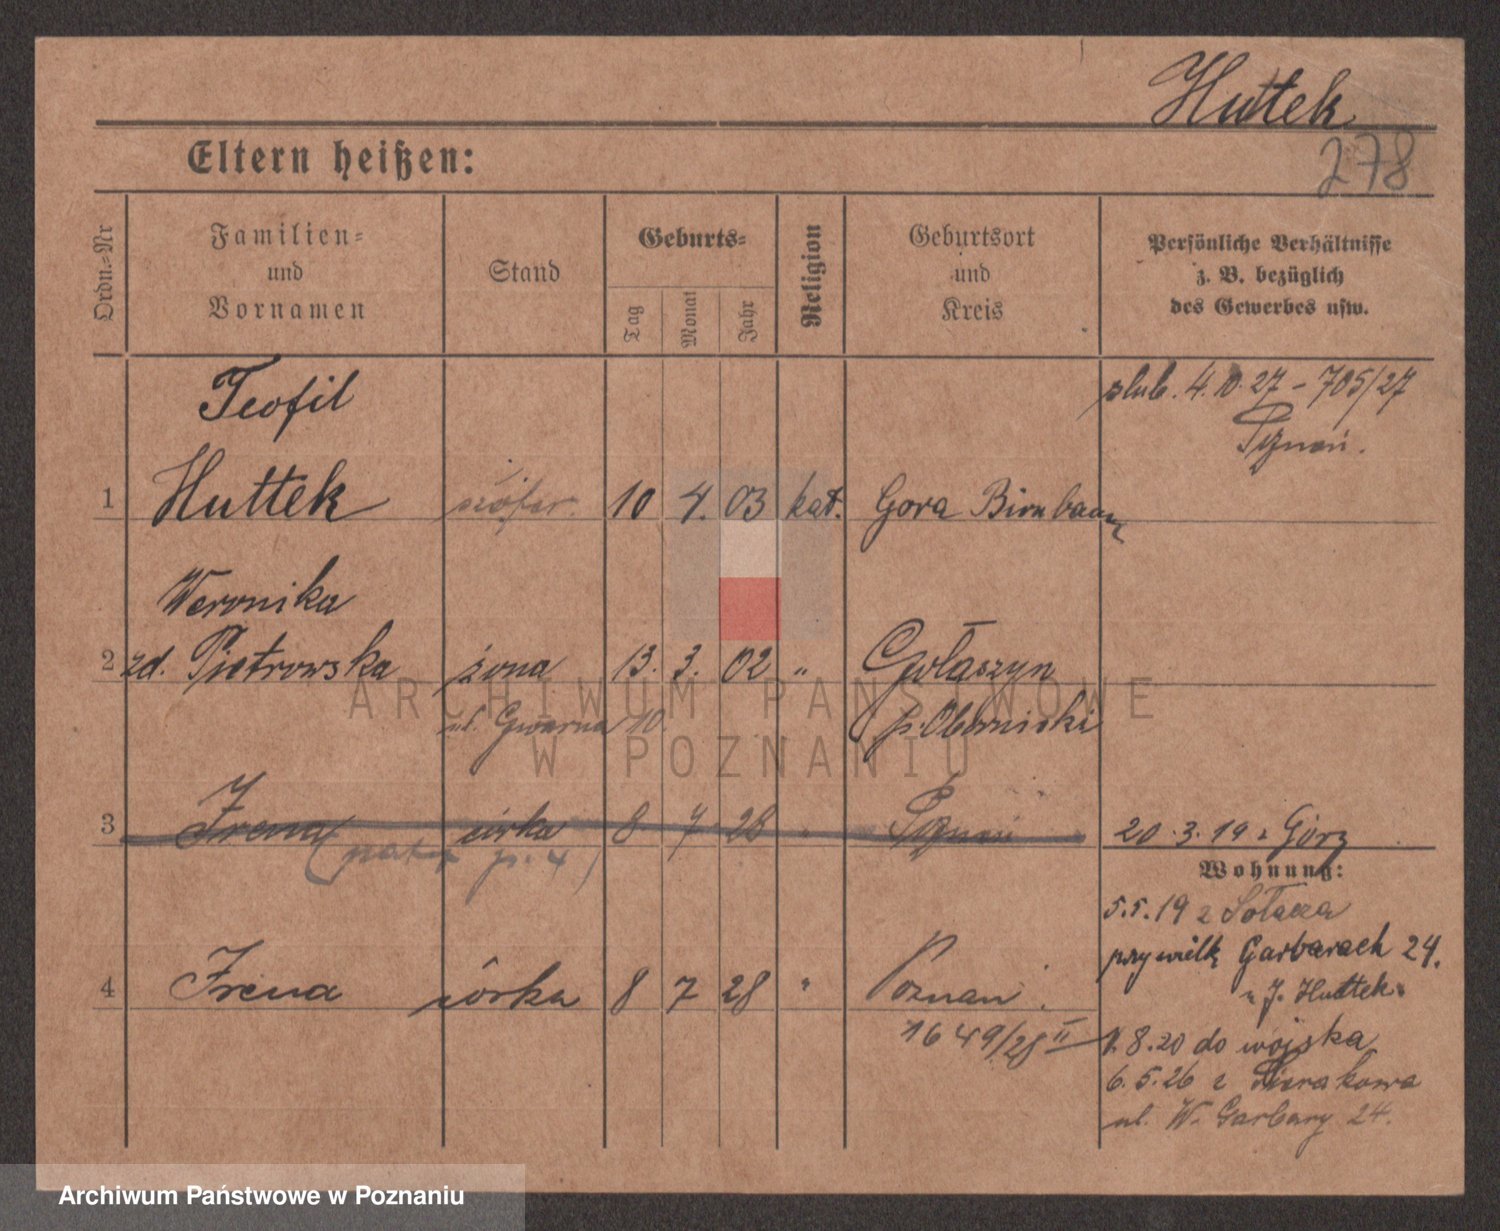 Huttek
Eltern heißen:
278
Ordn.=Nr
Familien=
und
Vornamen
Stand
Geburts=
Tag
Monat
Jahr
Religion
Geburtsort
und
Kreis
Persönliche Verhältnisse
z. B. bezüglich
des Gewerbes usw.
Teofil
ślub. 4.10.27 - 705/27
Pznań.
1 Huttek szofer. 10 4. 03 kat. Gora Birnbaum
Weronika
2 zd. Piotrowska żona 13. 3. 02 " Gołaszyn
ul. Gwarna 10. p. Obornicki
3 Irena córka 8 7 28 " Pznań 20.3.19 z Górz
(patrz p. 4)
Wohnung:
5.5.19 z Sołacza
przy wielk Garbarach 24.
u J. Huttek.
4 Irena córka 8 7 28 " Poznań.
1649/28 II
8.20 do wojska
6.5.26 z Sierakowa
ul. W. Garbary 24.
ARCHIWUM PAŃSTWOWE
W POZNANIU
Archiwum Państwowe w Poznaniu